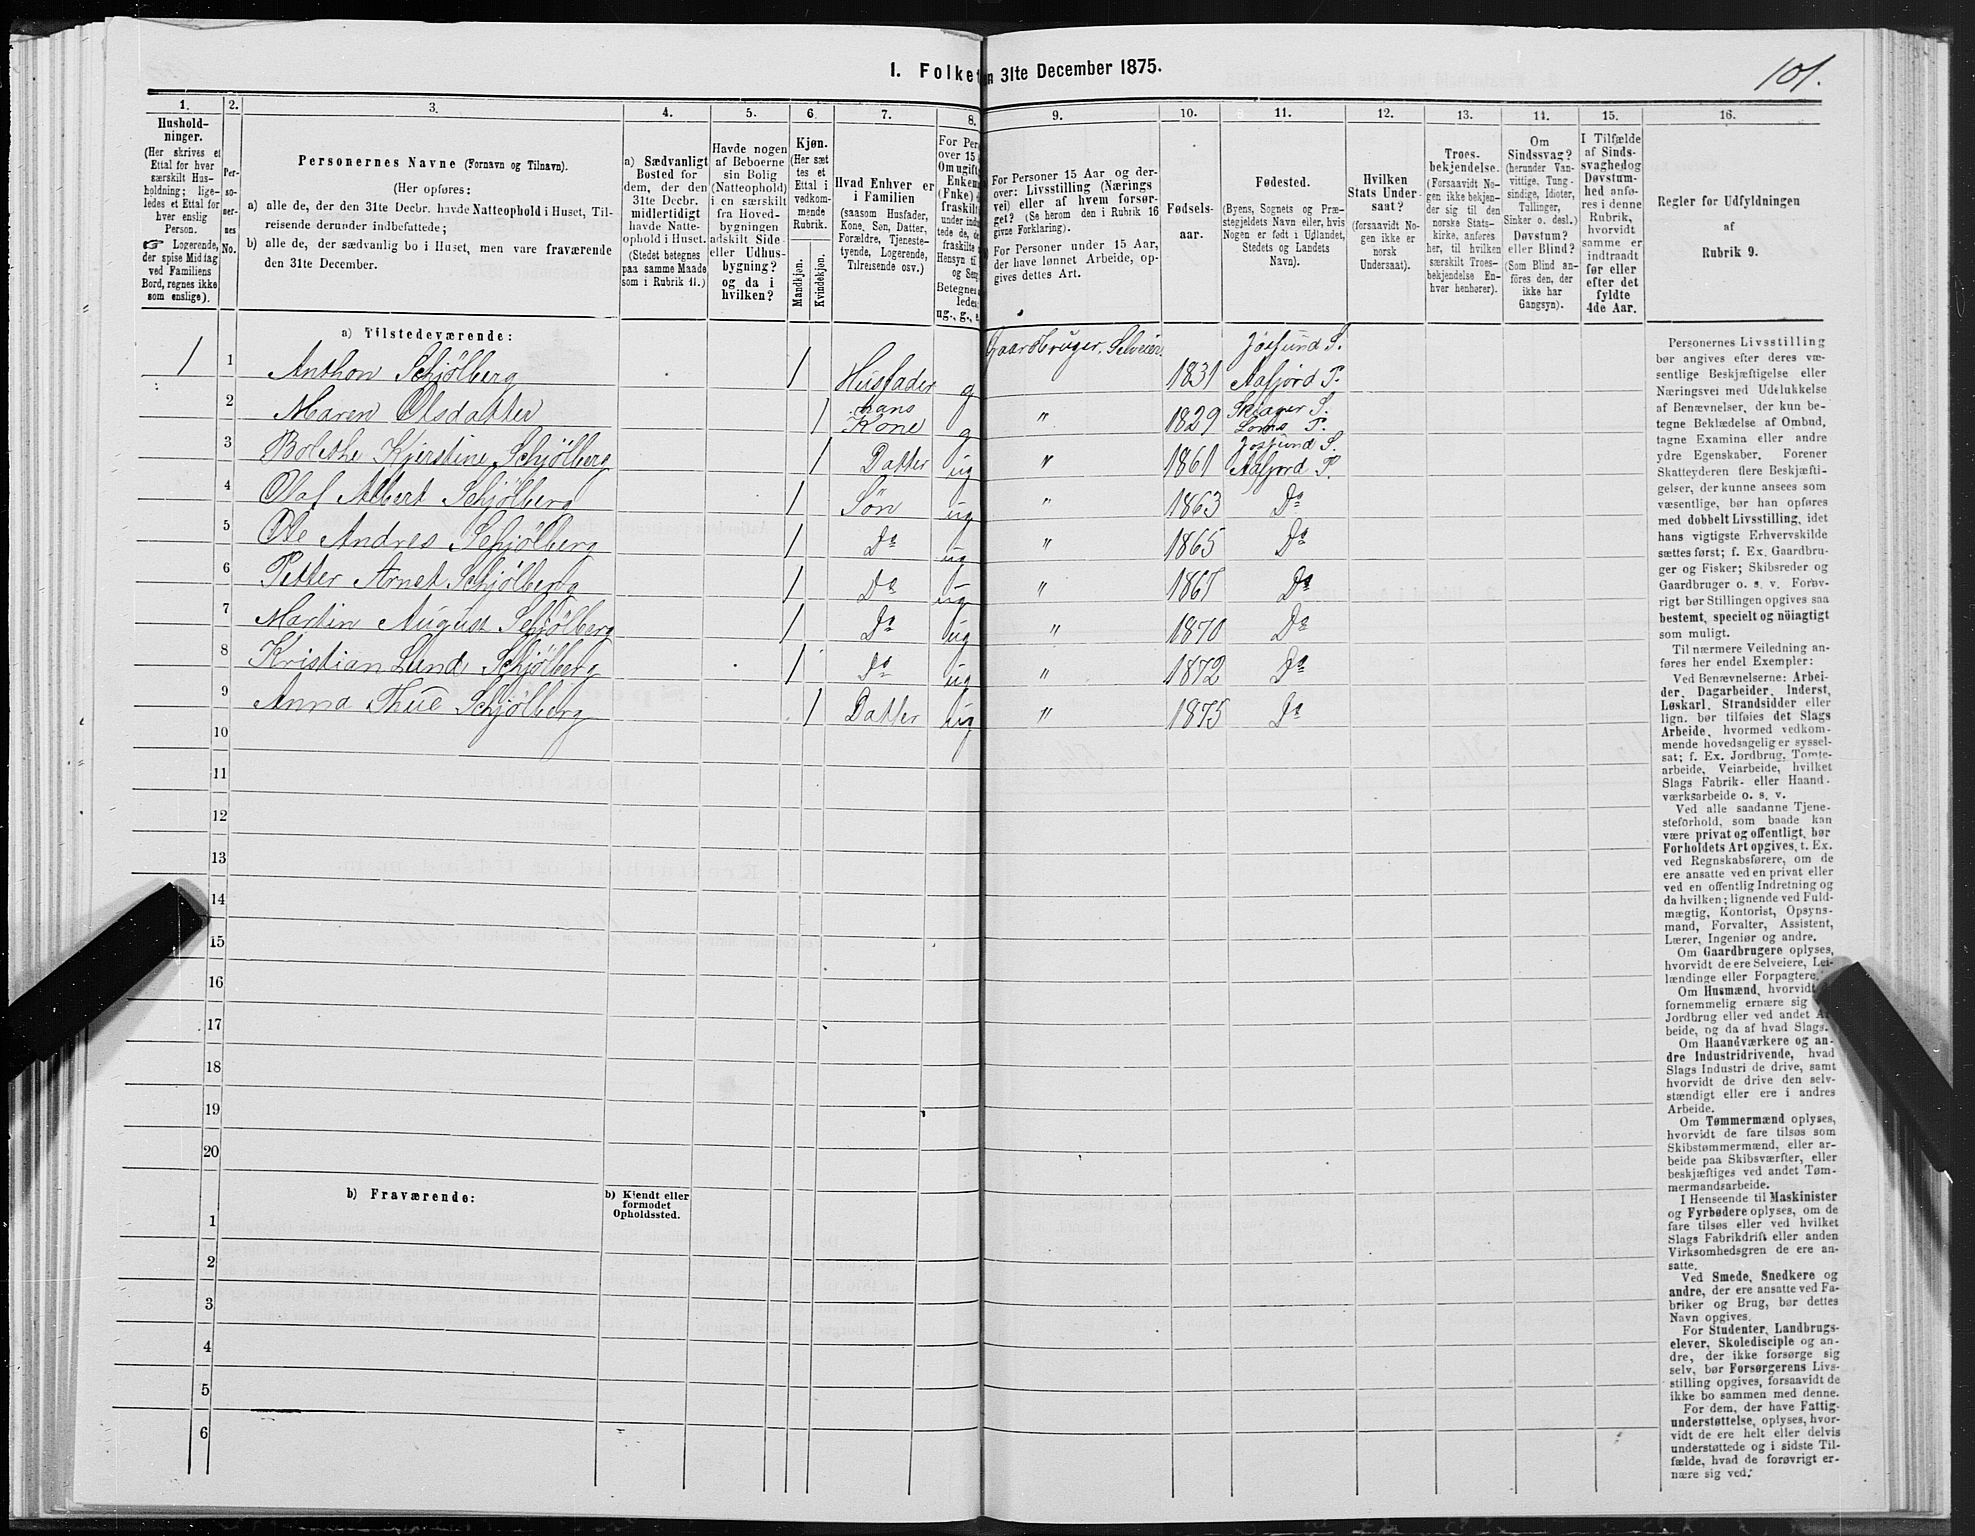 101.
1. Folket
n 31te December 1875.
1. 2. 3. 4. 5. 6. 7. 8. 9. 10. 11. 12. 13. 14. 15. 16.
Hushold-
ninger.
(Her skrives et
Ettal for hver
særskilt Hus-
holdning; lige-
ledes et Ettal for
hver enslig
Person.
☞ Logerende,
der spise Middag
ved Familiens
Bord, regnes ikke
som enslige).
Per-
so-
ner-
nes
No.
Personernes Navne (Fornavn og Tilnavn).
(Her opføres:
a) alle de, der den 31te Decbr. havde Natteophold i Huset, Til-
reisende derunder indbefattede;
b) alle de, der sædvanlig bo i Huset, men vare fraværende
den 31te December.
a) Sædvanligt
Bosted for
dem, der den
31te Decbr.
midlertidigt
havde Natte-
ophold i Huset.
(Stedet betegnes
paa samme Maade
som i Rubrik 11.)
Havde nogen
af Beboerne
sin Bolig
(Natteophold)
i en særskilt
fra Hoved-
bygningen
adskilt Side-
eller Udhus-
bygning?
og da i
hvilken?
Kjøn.
(Her sæt
tes et
Ettal i
vedkom-
mende
Rubrik.
Mandkjøn.
Kvindekjøn.
Hvad Enhver er
i Familien
(saasom Husfader,
Kone, Søn, Datter,
Forældre, Tjeneste-
tyende, Logerende,
Tilreisende osv.)
For Per
over 15
Om ugift
Enkem
(Fnke)
fraskilt
under indta
tede de, d
fraskilte
Hensyn til
og Seng
Betegnes
ledes:
ug., g., e
For Personer 15 Aar og der-
over: Livsstilling (Nærings
vei) eller af hvem forsør-
get? (Se herom den i Rubrik 16
givne Forklaring).
For Personer under 15 Aar,
der have lønnet Arbeide, op-
gives dettes Art.
Fødsels-
aar.
Fødested.
(Byens, Sognets og Præ-
stegjeldets Navn eller, hvis
Nogen er født i Udlandet,
Stedets og Landets
Navn).
Hvilken
Stats Under-
saat?
(forsaavidt No-
gen ikke er
norsk
Undersaat).
Troes-
bekjendelse.
(Forsaavidt No-
gen ikke bekjen-
der sig til den
norske Stats-
kirke, anføres
her, til hvilken
særskilt Troes-
bekjendelse En-
hver henhører).
Om
Sindssvag?
(herunder Van-
vittige, Tung-
sindige, Idioter,
Tullinger,
Sinker o. desl.)
Døvstum?
eller Blind?
(Som Blind an-
føres den, der
ikke har
Gangsyn).
I Tilfælde
af Sinds-
svaghed og
Døvstum-
hed anfø-
res i denne
Rubrik,
hvorvidt
samme er
indtraadt
før eller
efter det
fyldte
4de Aar.
Regler for Udfyldningen
af
Rubrik 9.
a) Tilstedeværende:
1 1 Anthon Schjølberg 1 Husfader g Gaardbruger, Selveier 1831 Josfund S. Aafjord P.
2 Maren Olsdatter 1 hans Kone g " 1829 S. P.
3 Bolethe Kjerstine Schjølberg 1 Datter ug " 1861 Josfund S. Aafjord P.
4 Olaf Albert Schjølberg 1 Søn ug " 1863 Do
5 Ole Andres Schjølberg 1 Do ug " 1865 Do
6 Petter Arnet Schjølberg 1 Do ug " 1867 Do
7 Martin August Schjølberg 1 Do ug " 1870 Do
8 Kristian Lund Schjølberg 1 Do ug " 1872 Do
9 Anna Thue Schjølberg 1 Datter ug " 1875 Do
10
11
12
13
14
15
16
17
18
19
20
b) Fraværende:
b) Kjendt eller
formodet
Opholdssted.
1
2
3
4
5
6
Personernes Livsstilling
bør angives efter deres væ-
sentlige Beskjæftigelse eller
Næringsvei med Udelukkelse
af Benævnelser, der kun be-
tegne Beklædelse af Ombud,
tagne Examina eller andre
ydre Egenskaber. Forener
Skatteyderen flere Beskjæfti-
gelser, der kunne ansees som
væsentlige, bør han opføres
med dobbelt Livsstilling, idet
hans vigtigste Erhvervskilde
sættes først; f. Ex. Gaardbru-
ger og Fisker; Skibsreder og
Gaardbruger o. s. v. Forøv-
rigt bør Stillingen opgives saa
bestemt, specielt og nöiagtigt
som muligt.
Til nærmere Veiledning an-
føres her endel Exempler:
Ved Benævnelserne: Arbei-
der, Dagarbeider, Inderst,
Løskarl, Strandsidder eller
lign. bør tilføies det Slags
Arbeide, hvormed vedkom-
mende hovedsagelig er syssel-
sat; f. Ex. Jordbrug, Tomte-
arbeide, Veiarbeide, hvilket
Slags Fabrik- eller Haand-
værksarbeide o. s. v.
Ved alle saadanne Tjene-
steforhold, som baade kan
være privat og offentligt, bør
Forholdets Art opgives, t. Ex.
ved Regnskabsførere, om de
ere ansatte ved en privat eller
ved en offentlig Indretning og
da hvilken; lignende ved Fuld-
mægtig, Kontorist, Opsyns-
mand, Forvalter, Assistent,
Lærer, Ingeniør og andre.
Om Gaardbrugere oplyses,
hvorvidt de ere Selveiere, Lei-
lændinge eller Forpagtere.
Om Husmænd, hvorvidt
fornemmelig ernære sig
Jordbrug eller ved andet Ar
beide, og da af hvad Slags.
Om Haandværkere og an-
dre Industridrivende, hvad
Slags Industri de drive, samt
hvorvidt de drive den selv-
stændigt eller ere i andres
Arbeide.
Om Tømmermænd oplyses,
hvorvidt de fare tilsøs som
Skibstømmermænd, eller ar-
beide paa Skibsværfter, eller
beskjæftiges ved andet Tøm-
mermandsarbeide.
I Henseende til Maskinister
og Fyrbødere oplyses, om de
fare tilsøs eller ved hvilket
Slags Fabrikdrift eller anden
Virksomhedsgren de ere an-
satte.
Ved Smede, Snedkere og
andre, der ere ansatte ved Fa-
briker og Brug, bør dettes
Navn opgives.
For Studenter, Landbrugs-
elever, Skoledisciple og an-
dre, der ikke forsørge sig
selv, bør Forsørgerens Livs-
stilling opgives, forsaavidt de
ikke bo sammen med denne.
For dem, der have Fattig-
understøttelse, oplyses, hvor-
vidt de ere helt eller delvis
understøttede og i sidste Til-
fælde, hvad de forøvrigt er-
nære sig ved.